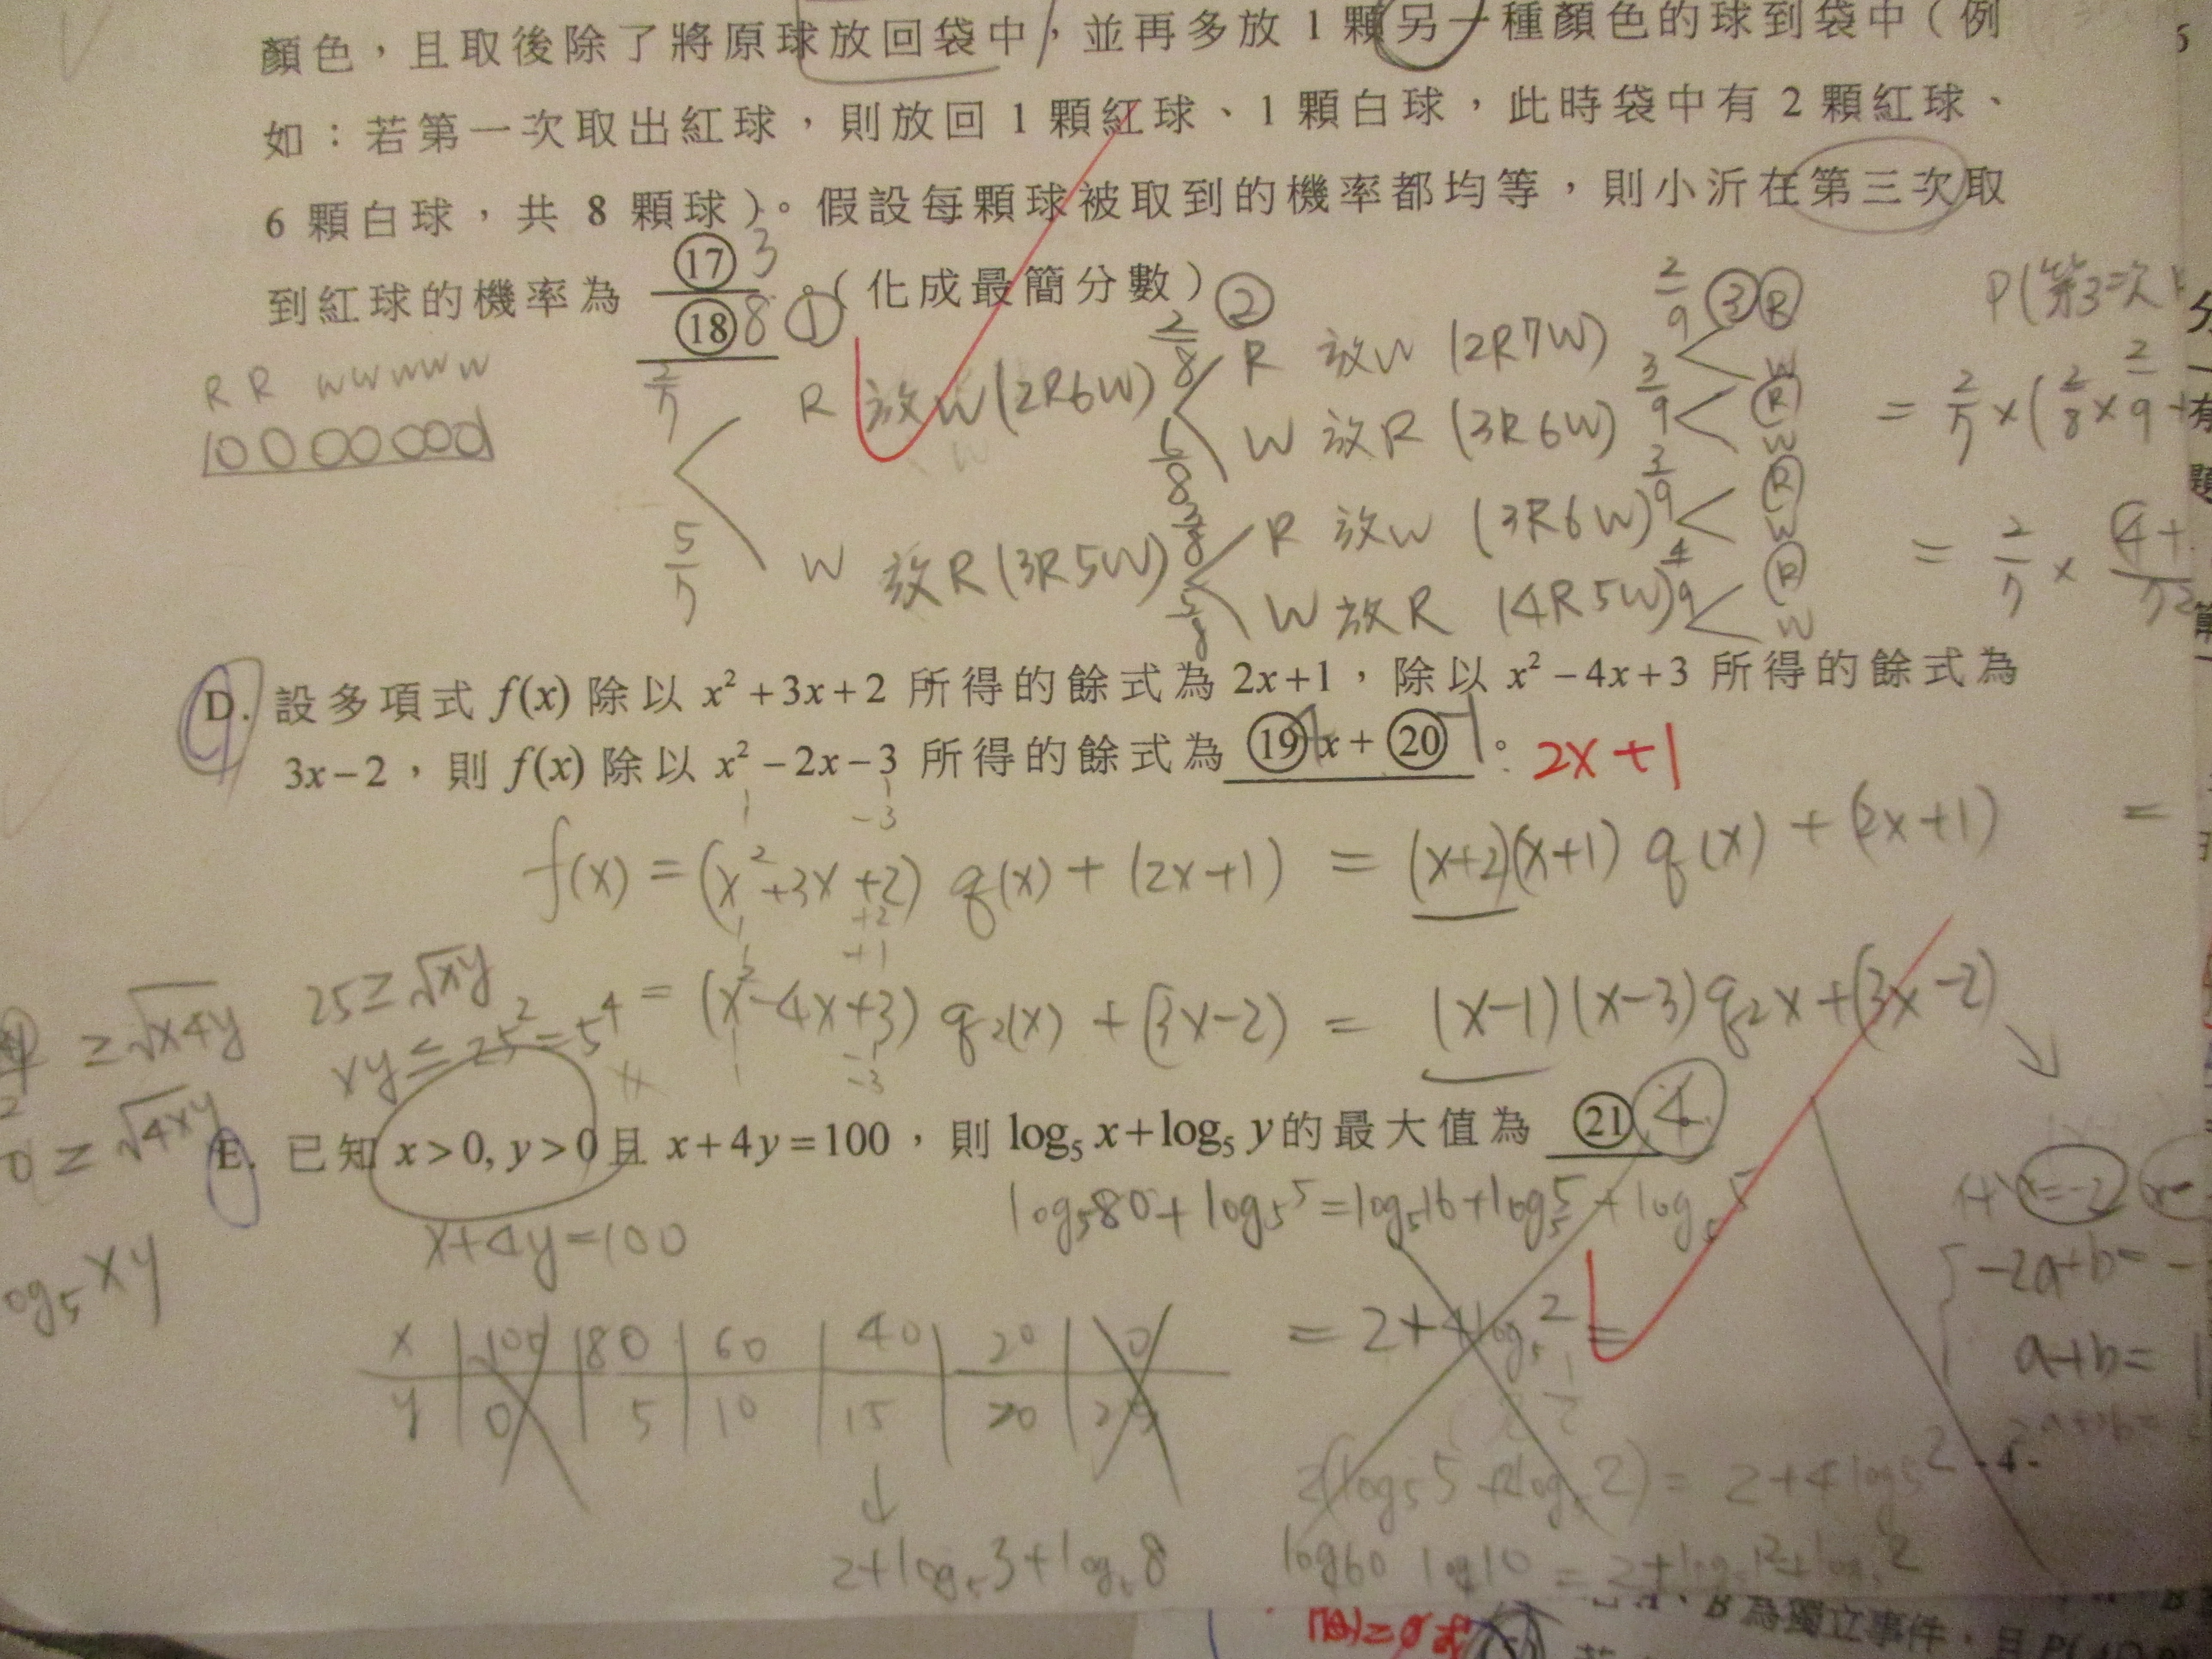 顏色，且取後除了將原球放回袋中，並再多放 1 顆另一種顏色的球到袋中（例
如：若第一次取出紅球，則放回 1 顆紅球、1 顆白球，此時袋中有 2 顆紅球、
6 顆白球，共 8 顆球）。假設每顆球被取到的機率都均等，則小沂在第三次取
到紅球的機率為 ⑰ 3 / ⑱ 8 。（化成最簡分數）
① ② ③
R R W W W W W
2/7 R 放W (2R6W) 2/8 R 放W (2R7W) 2/9 R W
6/8 W 放R (3R6W) 3/9 R W
5/7 W 放R (3R5W) 3/8 R 放W (3R6W) 3/9 R W
5/8 W 放R (4R5W) 4/9 R W
P(第3次
= 2/7 × (2/8 × 2/9 +
= 2/7 ×
D. 設多項式 f(x) 除以 x² + 3x + 2 所得的餘式為 2x+1，除以 x² − 4x + 3 所得的餘式為
3x − 2，則 f(x) 除以 x² − 2x − 3 所得的餘式為 ⑲ x + ⑳ −1 。 2x+1
f(x) = (x²+3x+2) q(x) + (2x+1) = (x+2)(x+1) q(x) + (2x+1) =
= (x²-4x+3) q₂(x) + (3x-2) = (x-1)(x-3) q₂x + (3x-2)
≥ √x4y
25 ≥ √xy
xy ≤ 25² = 5⁴
≥ √4xy
E. 已知 x > 0, y > 0 且 x + 4y = 100，則 log₅ x + log₅ y 的最大值為 ㉑ 4
x+4y=100
log₅80 + log₅5 = log₅16 + log₅5 + log₅5
log₅ xy
x=-2
-2a+b=
a+b=
= 2+4log₅2 =
x 100 80 60 40 20 0
y 0 5 10 15 20 25
↓
2+log₅3+log₅8
2(log₅5+2log₅2) = 2+4log₅2
-4-
log60 log10 = 2+log₅12+log₅2
B 為獨立事件，且